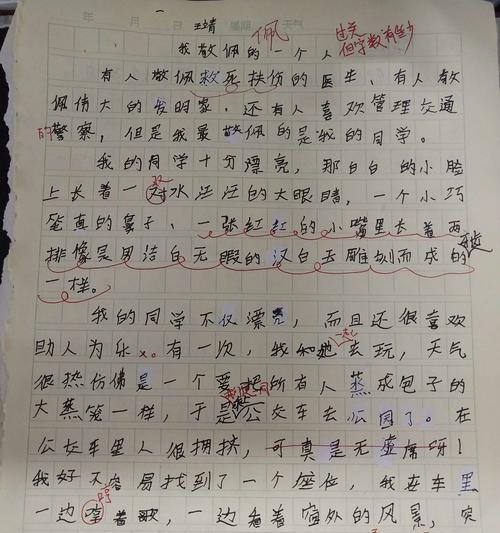 年 月 日 星期 天气
王婧 佩 过关
但字数有些少
我敬佩的一个人
有人敬佩救死扶伤的医生，有人敬
佩伟大的发明家，还有人喜欢管理交通
的警察，但是我最敬佩的是我的同学。
我的同学十分漂亮，那白白的小脸
上长着一对水汪汪的大眼睛，一个小巧
笔直的鼻子，一张红红的小嘴里长着两
排像是用洁白无暇的汉白玉雕刻而成的
一样。
我的同学不仅漂亮，而且还很喜欢
助人为乐。有一次，我和她一起去玩，天气
很热仿佛是一个要把所有人蒸成包子的
大蒸笼一样，于是公交车去公园了。在
公交车里人很拥挤，可真是无虚席呀！
我好不容易找到了一个座位，我在车里
一边哼着歌，一边看着窗外的风景，突